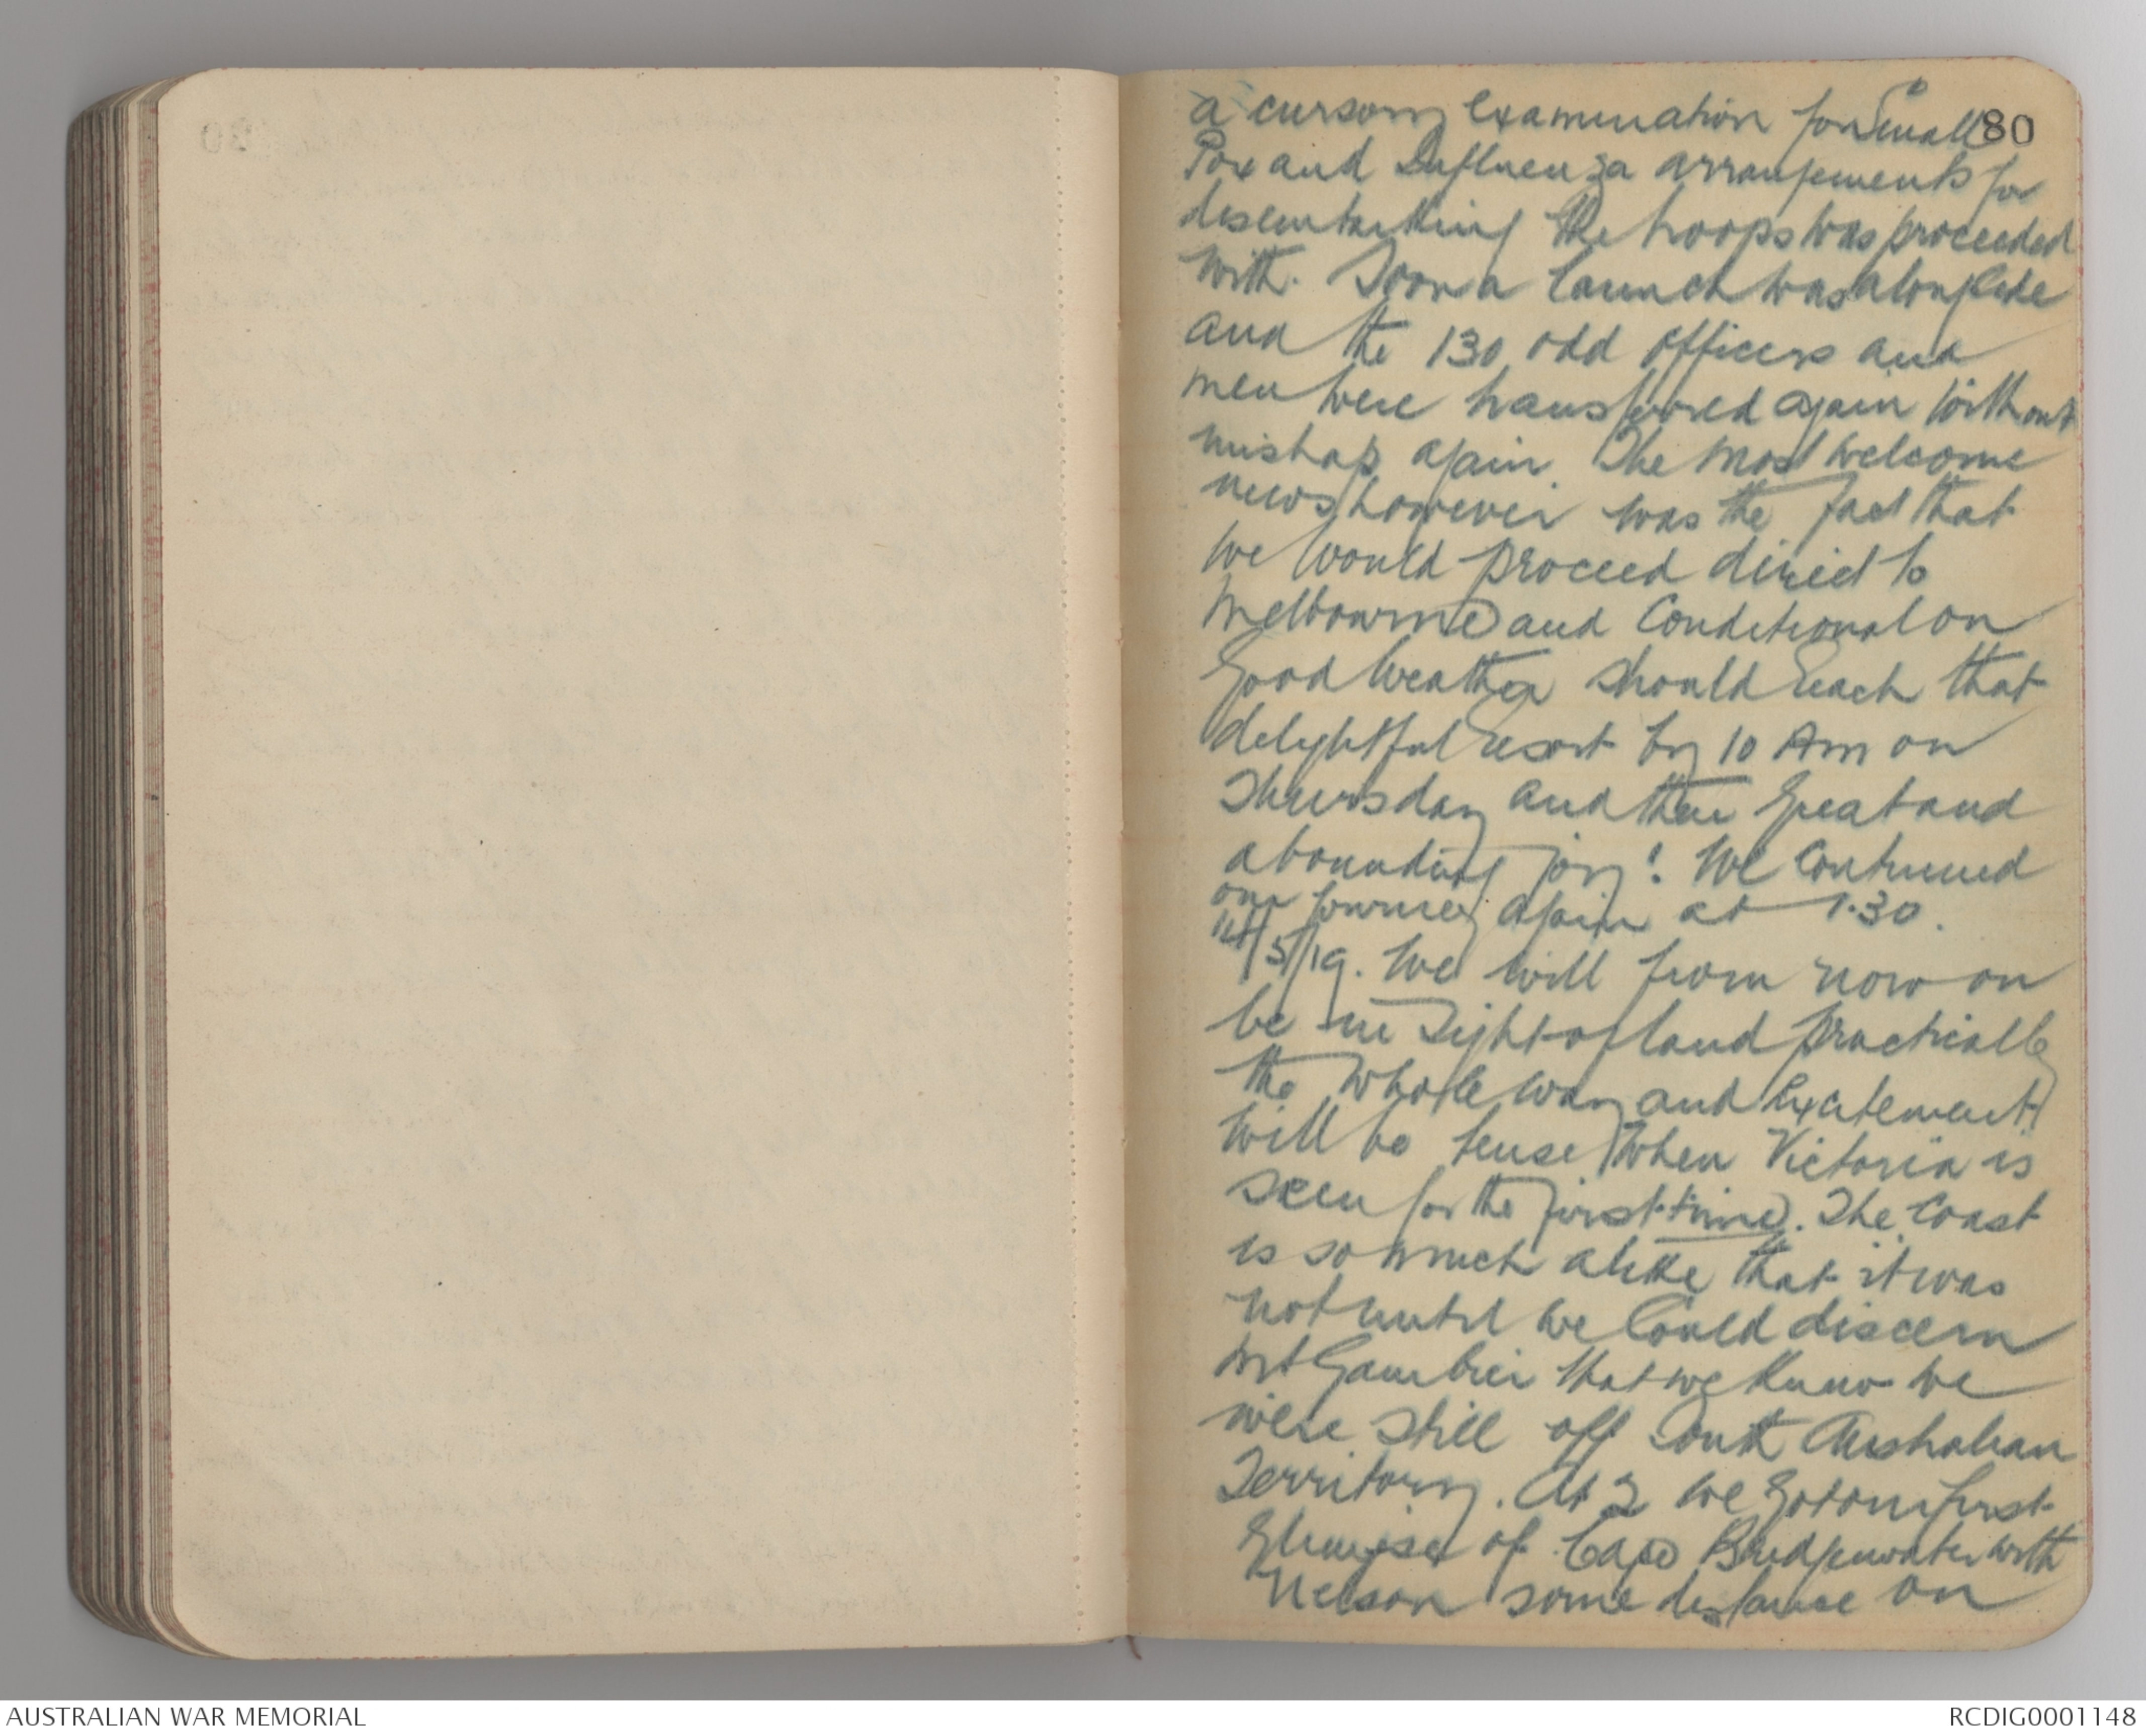 80
a cursory examination for Small
Pox and Influenza arrangements for
disembarking the troops was proceeded
with. Soon a launch was alongside
and the 130 odd officers and
men were transferred again without
mishap again. The most welcome
news however was the fact that
we would proceed direct to
Melbourne and Conditional on
Good Weather should reach that
delightful resort by 10 Am on
Thursday and then Great and
abounding joy! We Continued
our journey again at 1.30.
14/5/19. We will from now on
be in sight of land practically
the whole way and Excitement
will be tense when Victoria is
seen for the first time. The Coast
is so much alike that it was
not until we Could discern
Mt Gambier that we knew we
were still off South Australian
Territory. At 2 we Got our first
Glimpse of Cape Bridgewater with
Nelson some distance on
AUSTRALIAN WAR MEMORIAL
RCDIG0001148